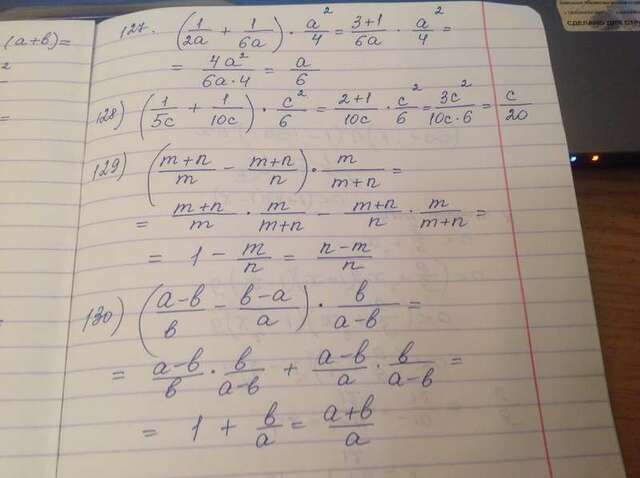 (a+b)=
2
=
127. (1/2a + 1/6a) · a²/4 = 3+1/6a · a²/4 =
= 4a²/6a·4 = a/6
128) (1/5c + 1/10c) · c²/6 = 2+1/10c · c²/6 = 3c²/10c·6 = c/20
129) (m+n/m − m+n/n) · m/m+n =
= m+n/m · m/m+n − m+n/n · m/m+n =
= 1 − m/n = n−m/n
130) (a−b/b − b−a/a) · b/a−b =
= a−b/b · b/a−b + a−b/a · b/a−b =
= 1 + b/a = a+b/a